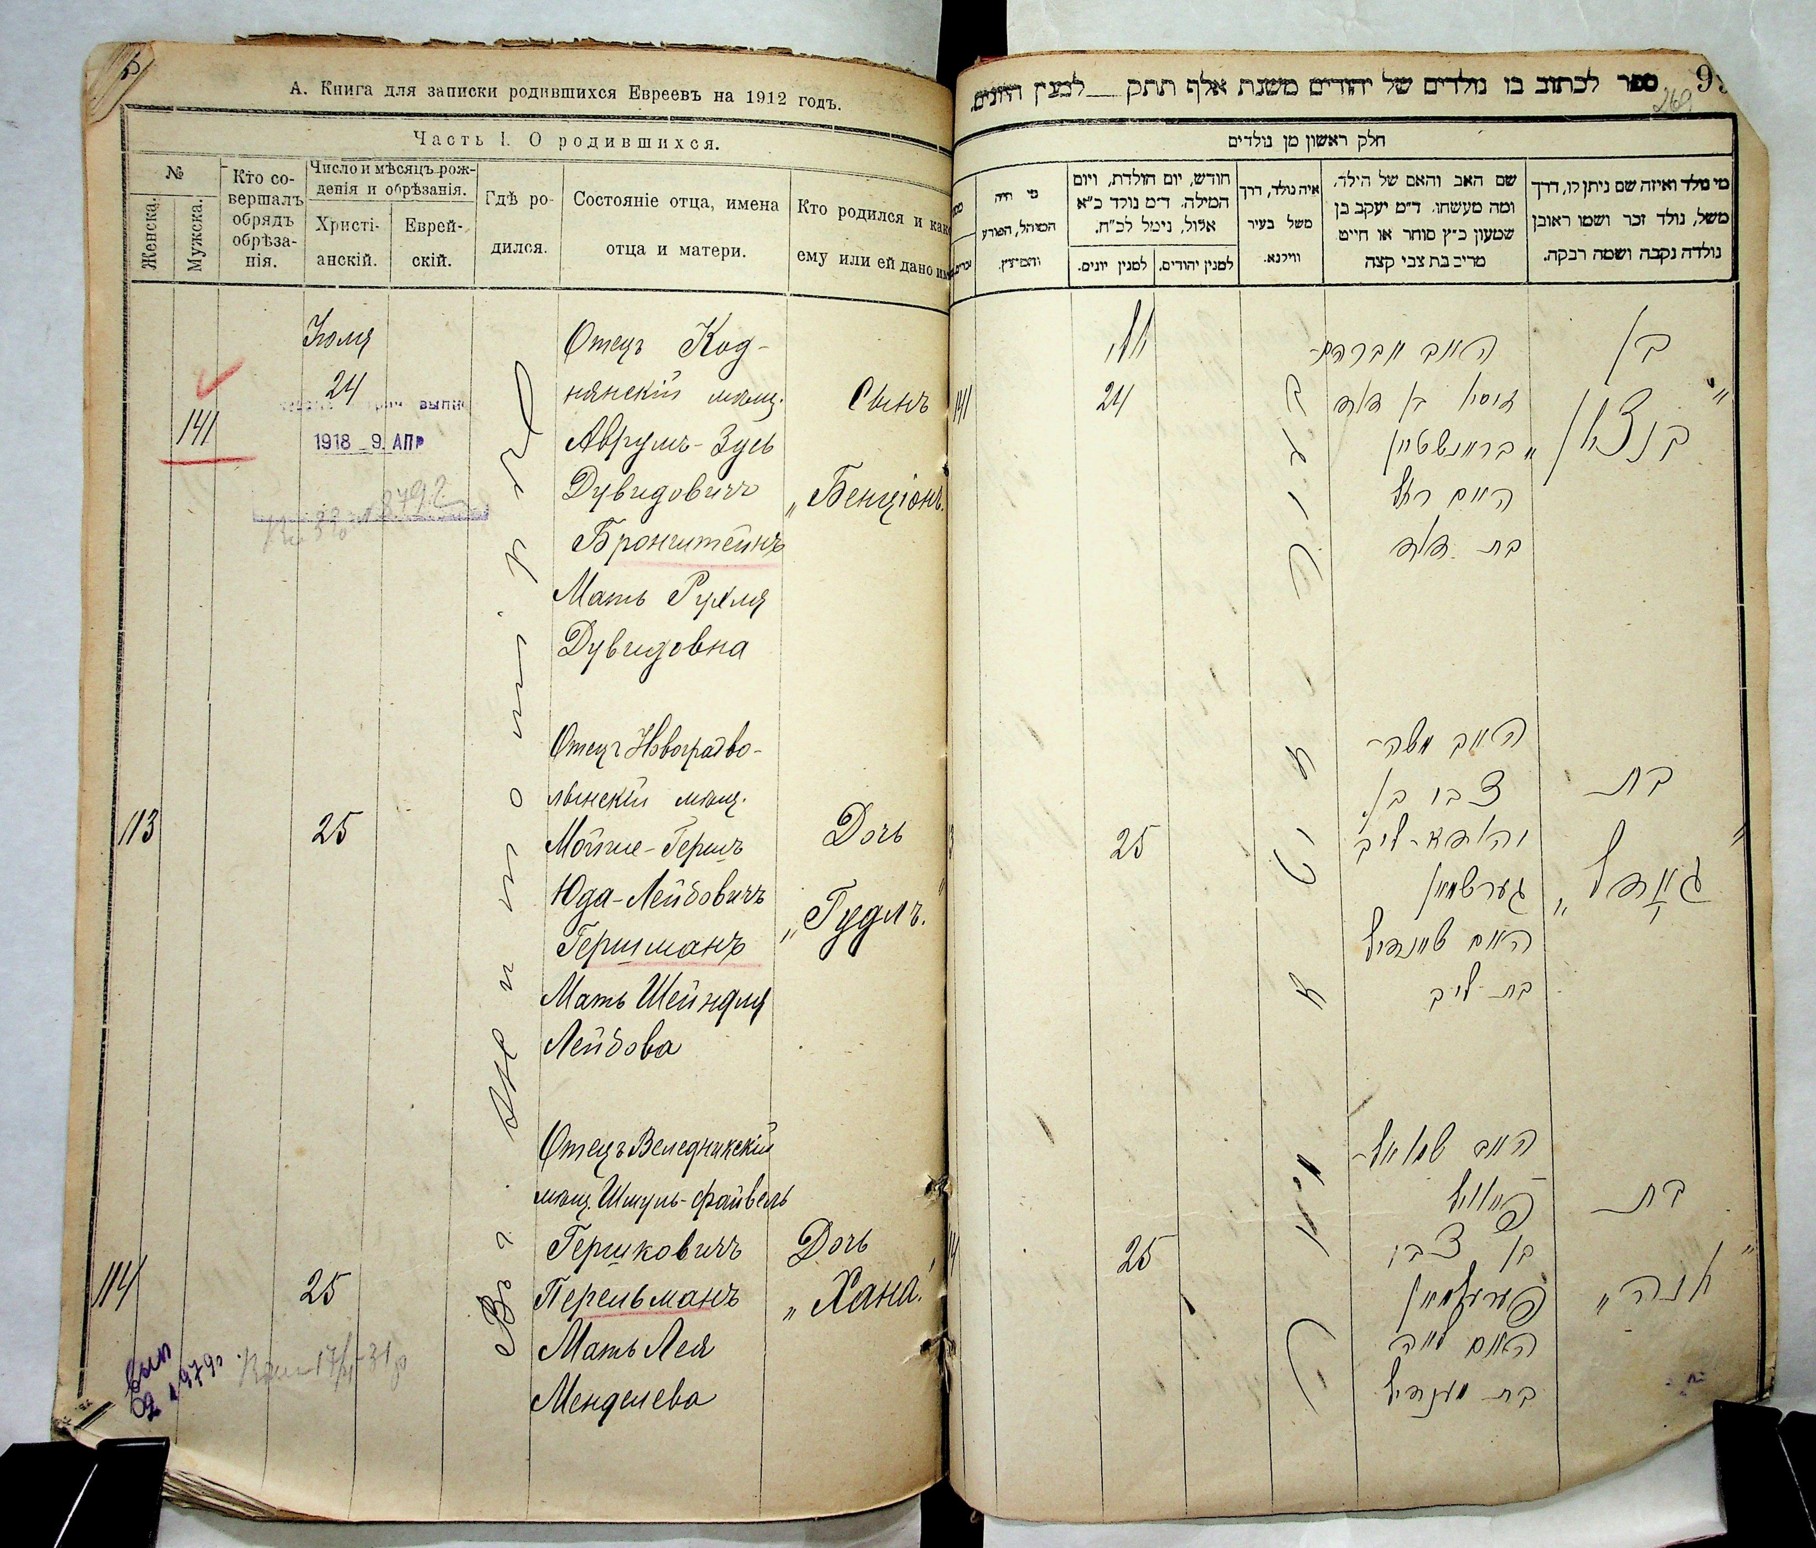 А. Книга для записки родившихся Евреевъ на 1912 годъ.
Часть I. О родившихся.
№
Женска.
Мужска.
Кто со-
вершалъ
обрядъ
обрѣза-
нія.
Число и мѣсяцъ рож-
денія и обрѣзанія.
Христі-
анскій.
Еврей-
скій.
Гдѣ ро-
дился.
Состояніе отца, имена
отца и матери.
Кто родился и како
ему или ей дано им
141
Іюля
24
1918 9. АПР
Въ г. Житомирѣ
Отецъ Код-
нянскій мѣщ.
Аврумъ-Зусь
Дувидовичъ
Бронштейнъ
Мать Рухля
Дувидовна
Сынъ
„Бенціонъ"
113
25
Отецъ Новоградво-
лынскій мѣщ.
Мойше-Гершъ
Юда-Лейбовичъ
Гершманъ
Мать Шейндля
Лейбова
Дочь
„Гудль."
114
25
Отецъ Веледникскій
мѣщ. Шмуль-Файвель
Гершковичъ
Перельманъ
Мать Лея
Менделева
Дочь
„Хана."
ספר לכתוב בו נולדים של יהודים משנת אלף תתק למנין היונים.
269
חלק ראשון מן נולדים
מי נולד ואיזה שם ניתן לו, דרך
משל, נולד זכר ושמו ראובן
נולדה נקבה ושמה רבקה.
שם האב והאם של הילד,
ומה מעשהו. ד״מ יעקב בן
שמעון כ״ץ סוחר או חייט
מריב בת צבי קצה
איה נולד, דרך
משל בעיר
ווילנא.
חודש, יום הולדת, ויום
המילה. ד״מ נולד כ״א
אלול, נימל לכ״ח.
למנין יהודים.
למנין יונים.
מי היה
המוהל, הפורע
והמוצץ.
בן
„בנציון"
האב אברהם
זוסיא בן דוד
ברוינשטיין
האם רחל
בת דוד
יולי
24
141
בת
„גודל"
האב משה
צבי בן
יהודא-ליב
גערשמאן
האם שיינדיל
בת ליב
25
בת
„חנה"
האב שמואל
פייוויל
בן צבי
פערעלמאן
האם לאה
בת מענדיל
25